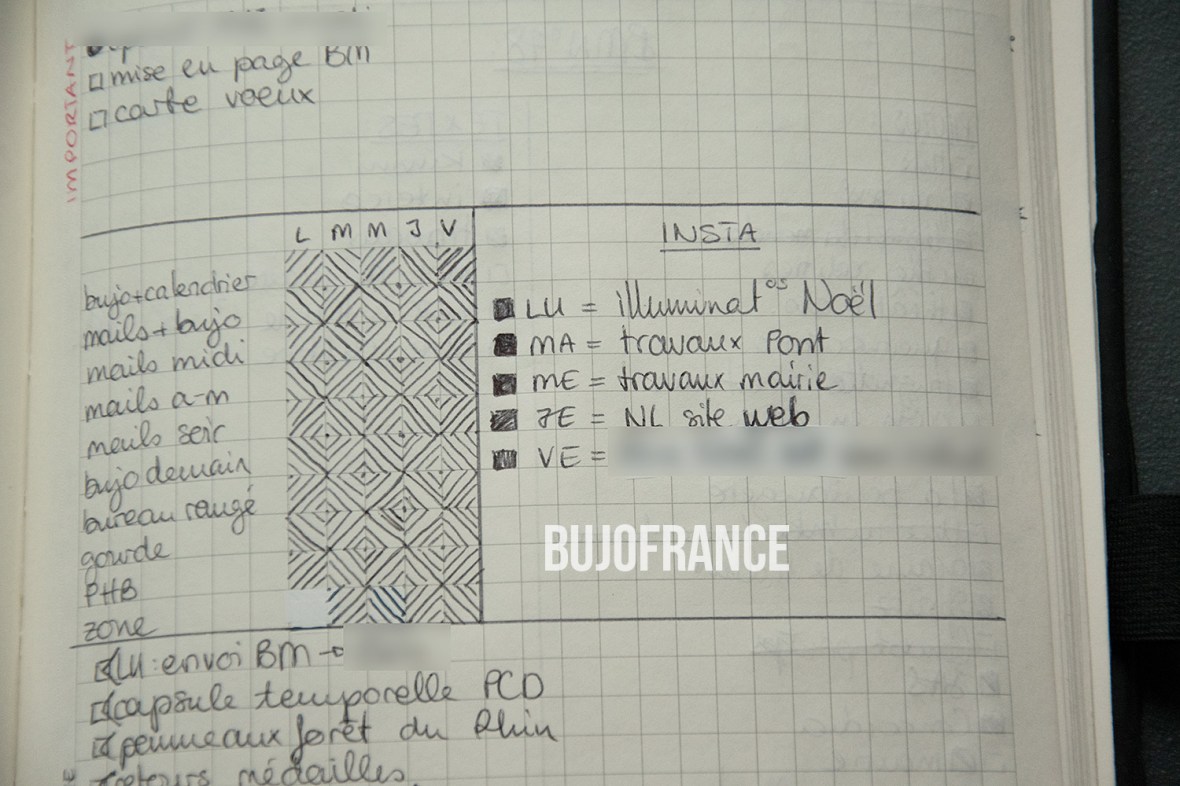 IMPORTANT
mise en page BM
carte voeux
L M M J V
bujo+calendrier
mails + bujo
mails midi
mails a-m
mails soir
bujo demain
bureau rangé
gourde
PHB
zone
INSTA
LU = illuminat⁰ˢ Noël
MA = travaux Pont
ME = travaux mairie
JE = NL site web
VE =
BUJOFRANCE
LU : envoi BM →
capsule temporelle PCD
panneaux forêt du Rhin
médailles